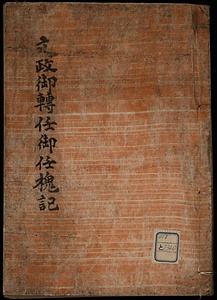 文政御轉任御任槐記